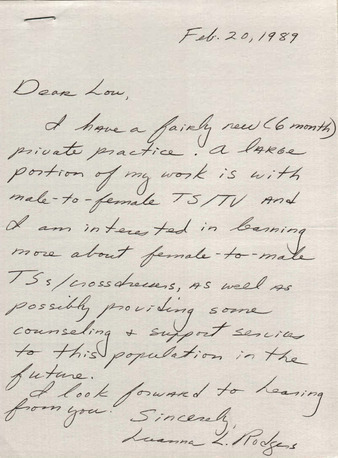 Feb. 20, 1989
Dear Lou,
I have a fairly new (6 month)
private practice. A large
portion of my work is with
male-to-female TS/TV and
I am interested in learning
more about female-to-male
TSs/crossdressers, as well as
possibly providing some
counseling & support services
to this population in the
future.
I look forward to hearing
from you. Sincerely,
Luanna L. Rodgers